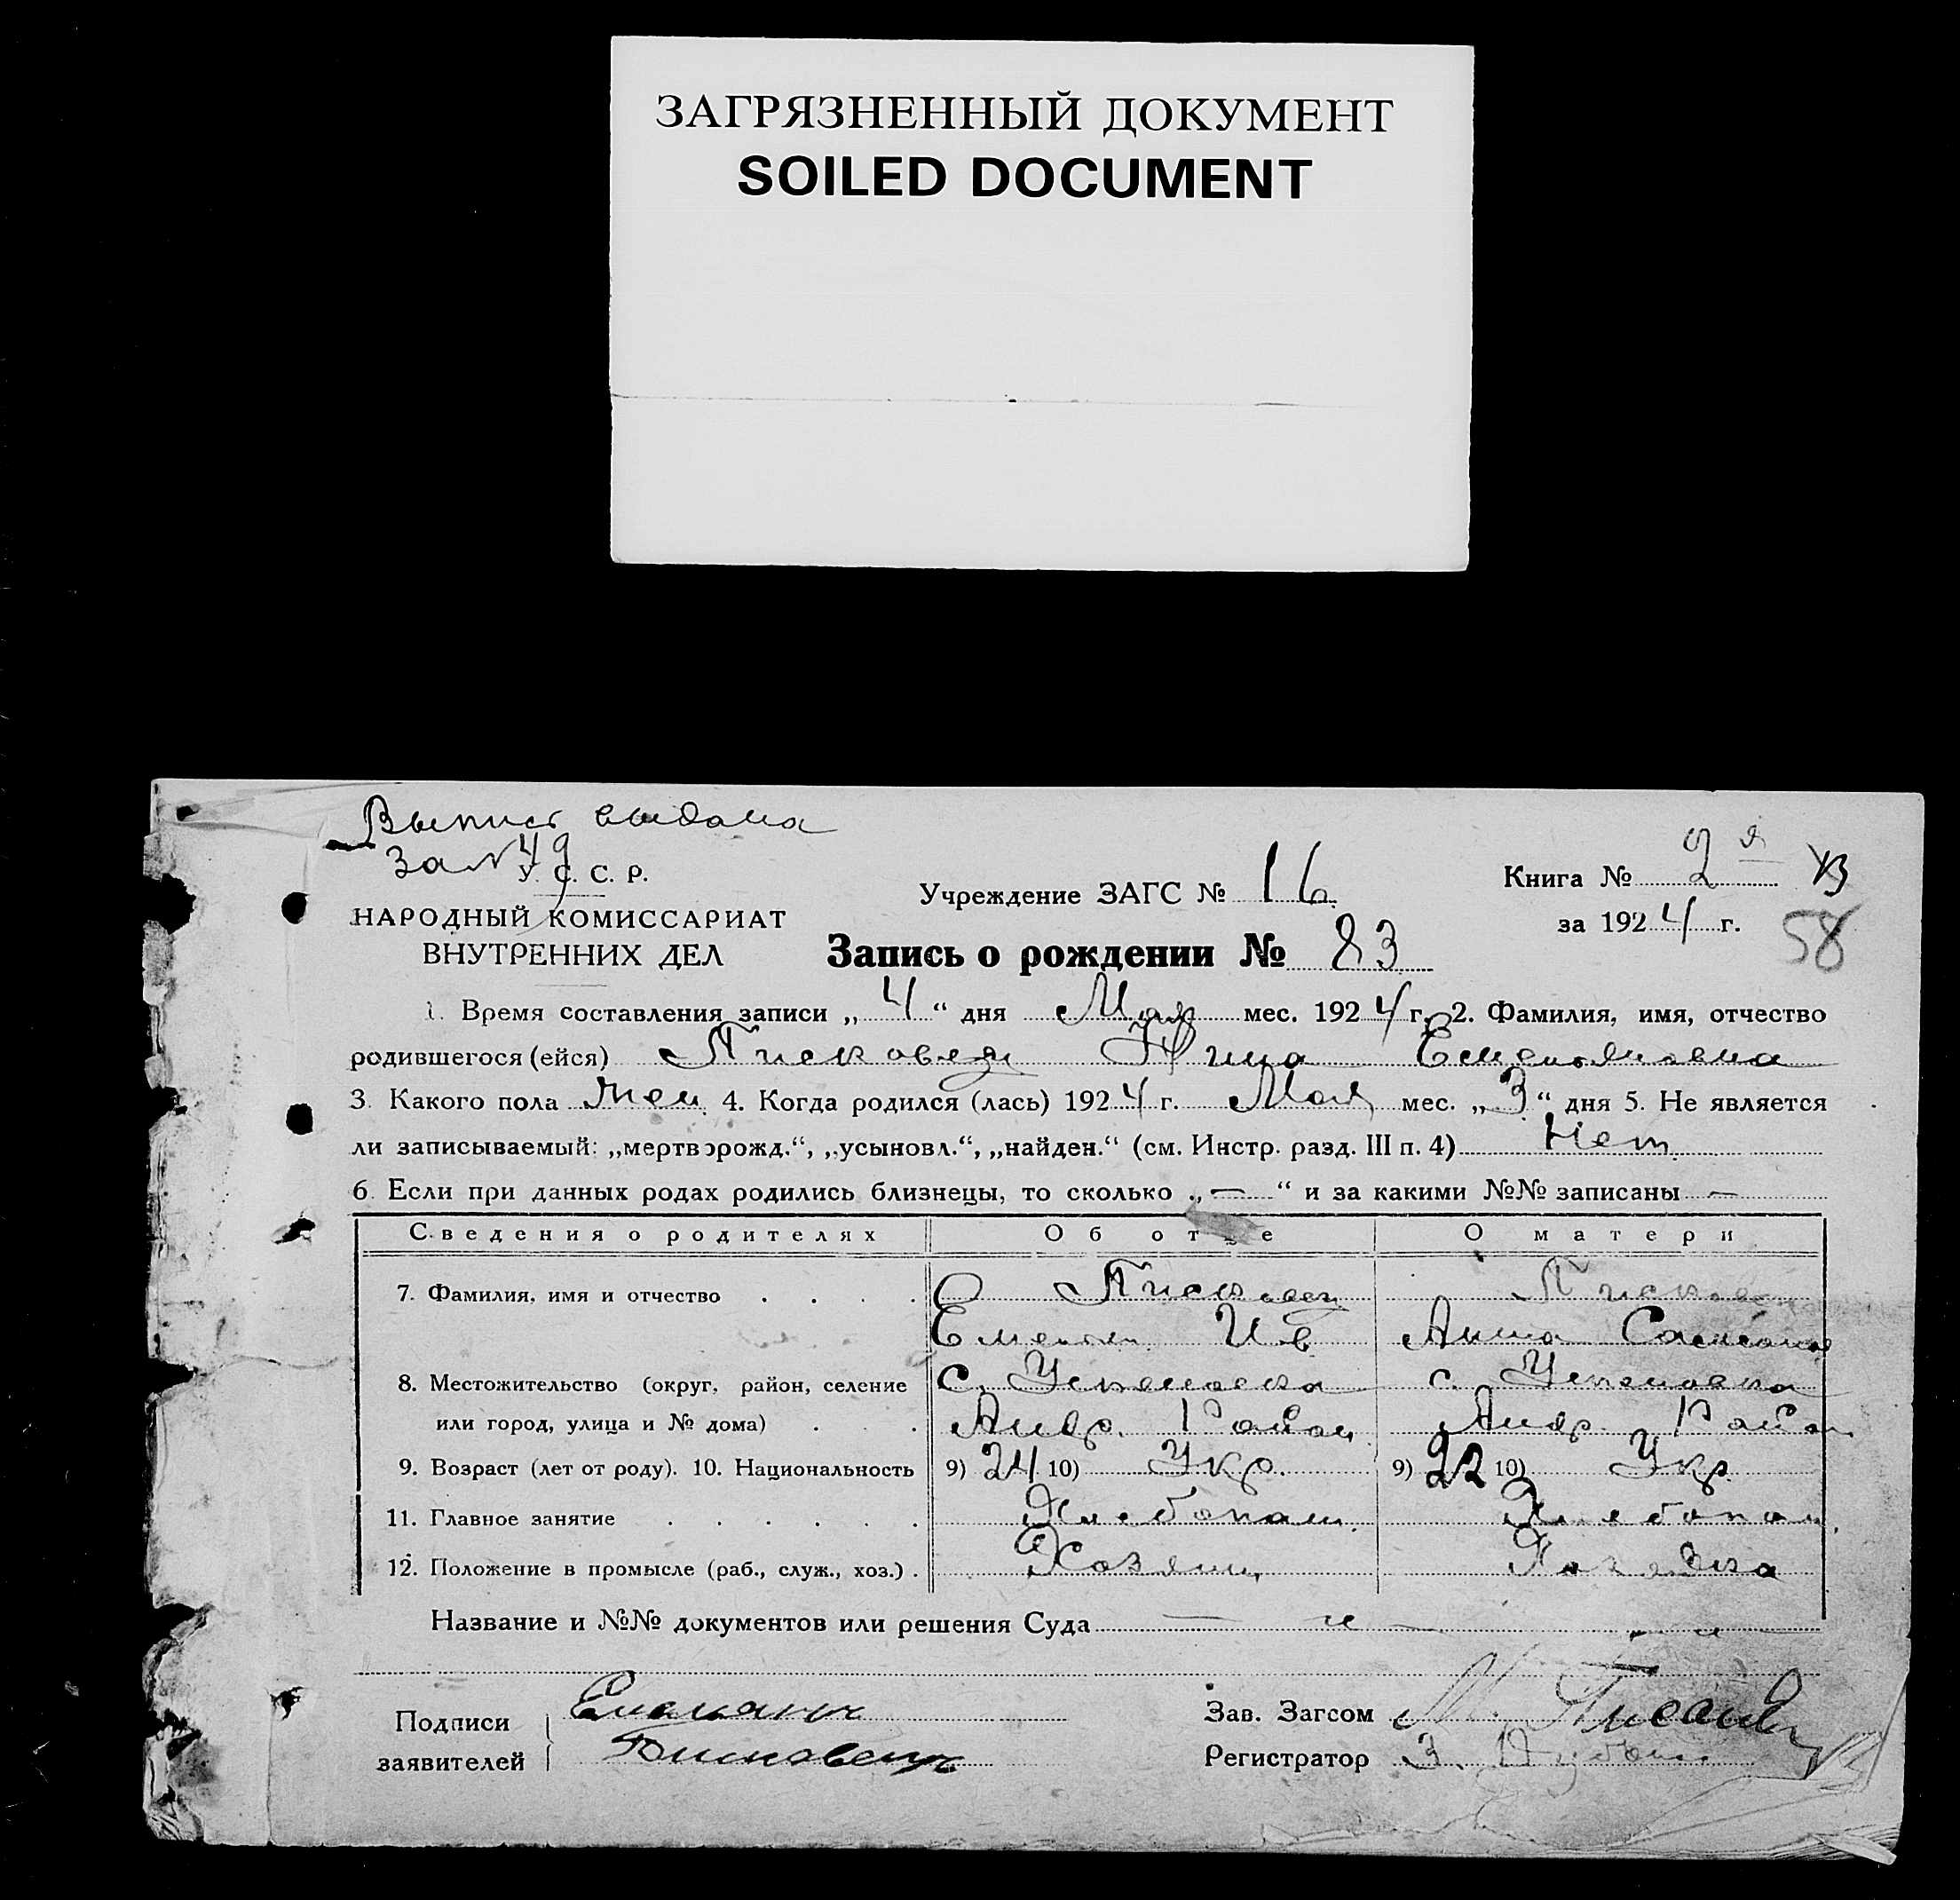 ЗАГРЯЗНЕННЫЙ ДОКУМЕНТ
SOILED DOCUMENT
Выпись выдана
за № 49
У. С. С. Р.
НАРОДНЫЙ КОМИССАРИАТ
ВНУТРЕННИХ ДЕЛ
Учреждение ЗАГС № 16
Книга № 2я
за 1924 г.
58
Запись о рождении № 83
1. Время составления записи „ 4 “ дня Мая мес. 1924 г. 2. Фамилия, имя, отчество
родившегося (ейся) Писковец Нина Емельяновна
3. Какого пола жен. 4. Когда родился (лась) 1924 г. Мая мес. „ 3 “ дня 5. Не является
ли записываемый: „мертворожд.“, „усыновл.“, „найден.“ (см. Инстр. разд. III п. 4) Нет
6. Если при данных родах родились близнецы, то сколько „ — “ и за какими №№ записаны —
Сведения о родителях Об отце О матери
7. Фамилия, имя и отчество . . . . Писковец Писковец
Емельян Ив Анна
8. Местожительство (округ, район, селение с. Успеновка с. Успеновка
или город, улица и № дома) . . . Андр. Район Андр. Район
9. Возраст (лет от роду). 10. Национальность 9) 24 10) Укр. 9) 22 10) Укр.
11. Главное занятие . . . . . . Хлебопаш. Хлебопаш.
12. Положение в промысле (раб., служ., хоз.) . Хозяин Хозяйка
Название и №№ документов или решения Суда — „ — „ —
Подписи заявителей Емельян
Писковець
Зав. Загсом М.
Регистратор З.